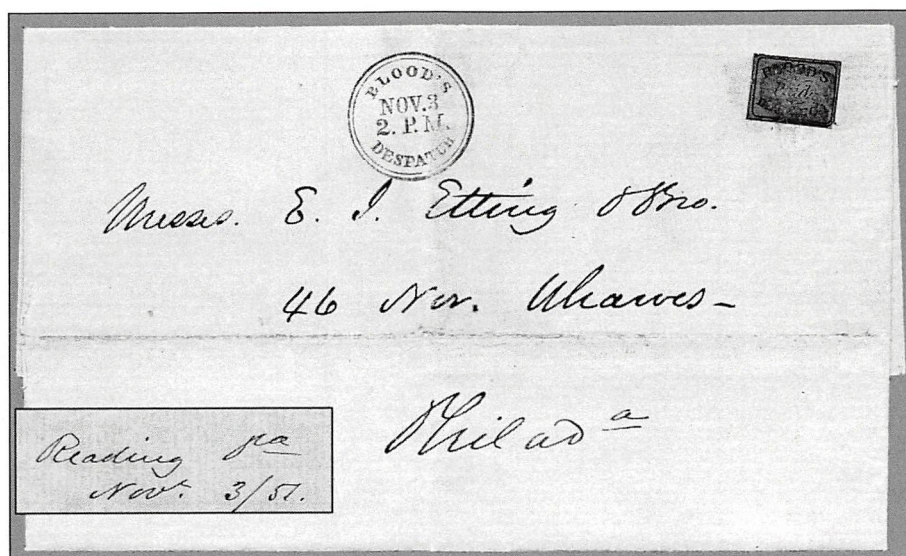 BLOOD'S
NOV.3
2. P.M.
DESPATCH
BLOOD'S
Messrs. E. I. Etting & Bro.
46 Nor. Wharves –
Philada
Reading pa
Novr. 3/51.